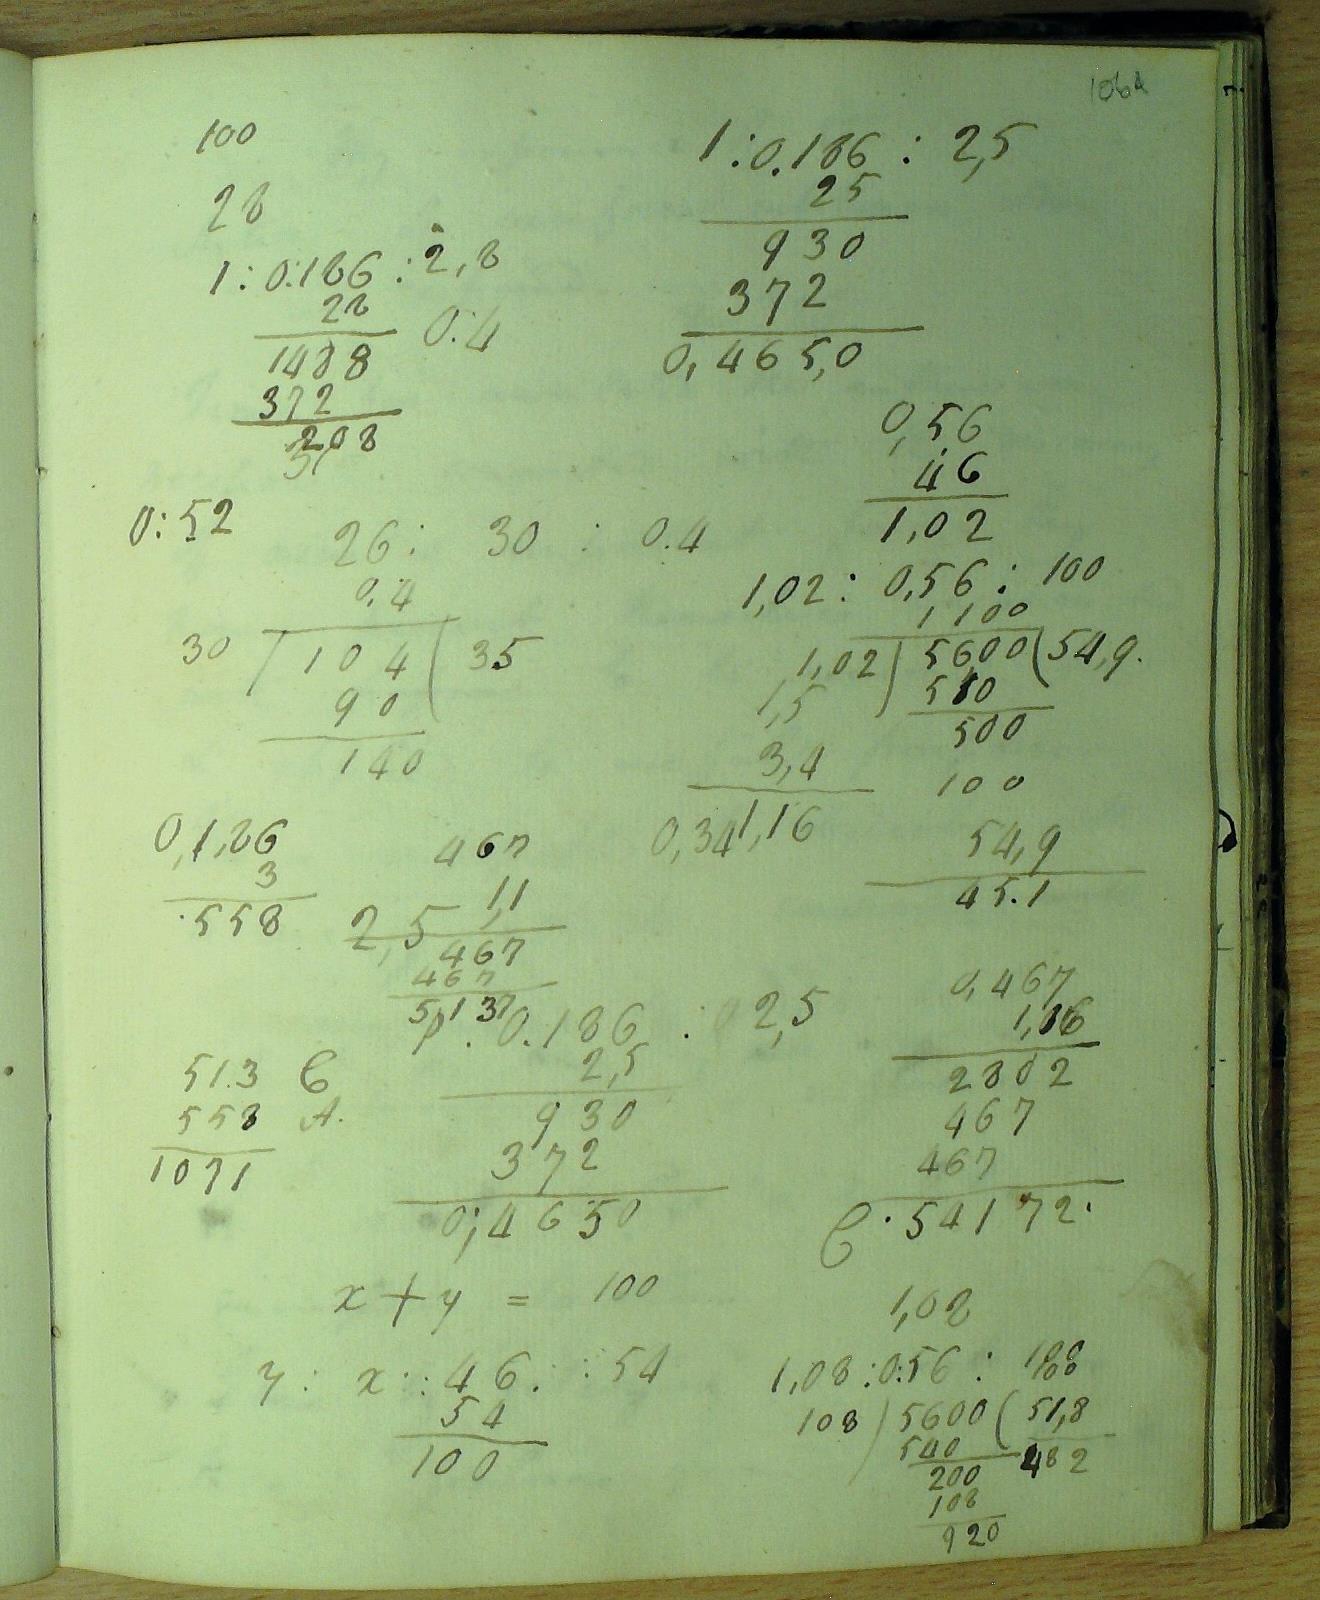 100
28
1:0.186 : 2,8
28
0.4
1488
372
208
0:52
26: 30 : 0.4
0.4
30 / 104 ( 35
90
140
0,1,86
3
.558
467
1,1
2,5
467
467
5137
51.3 C
558 A.
1071
0.186 : 2,5
2,5
930
372
0;4650
x + y = 100
y : x :: 46 : : 54
54
100
1:0.186 : 2,5
25
930
372
0,465,0
0,56
46
1,02
1,02 : 0,56 : 100
1 100
1,02 ) 5600 ( 54,9.
510
500
1,5
3,4
1,16
0,34
100
54,9
45.1
0,467
1,16
2802
467
467
C .54172.
1,08
1,08 :0:56 : 100
108 ) 5600 ( 51,8
540
482
200
108
920